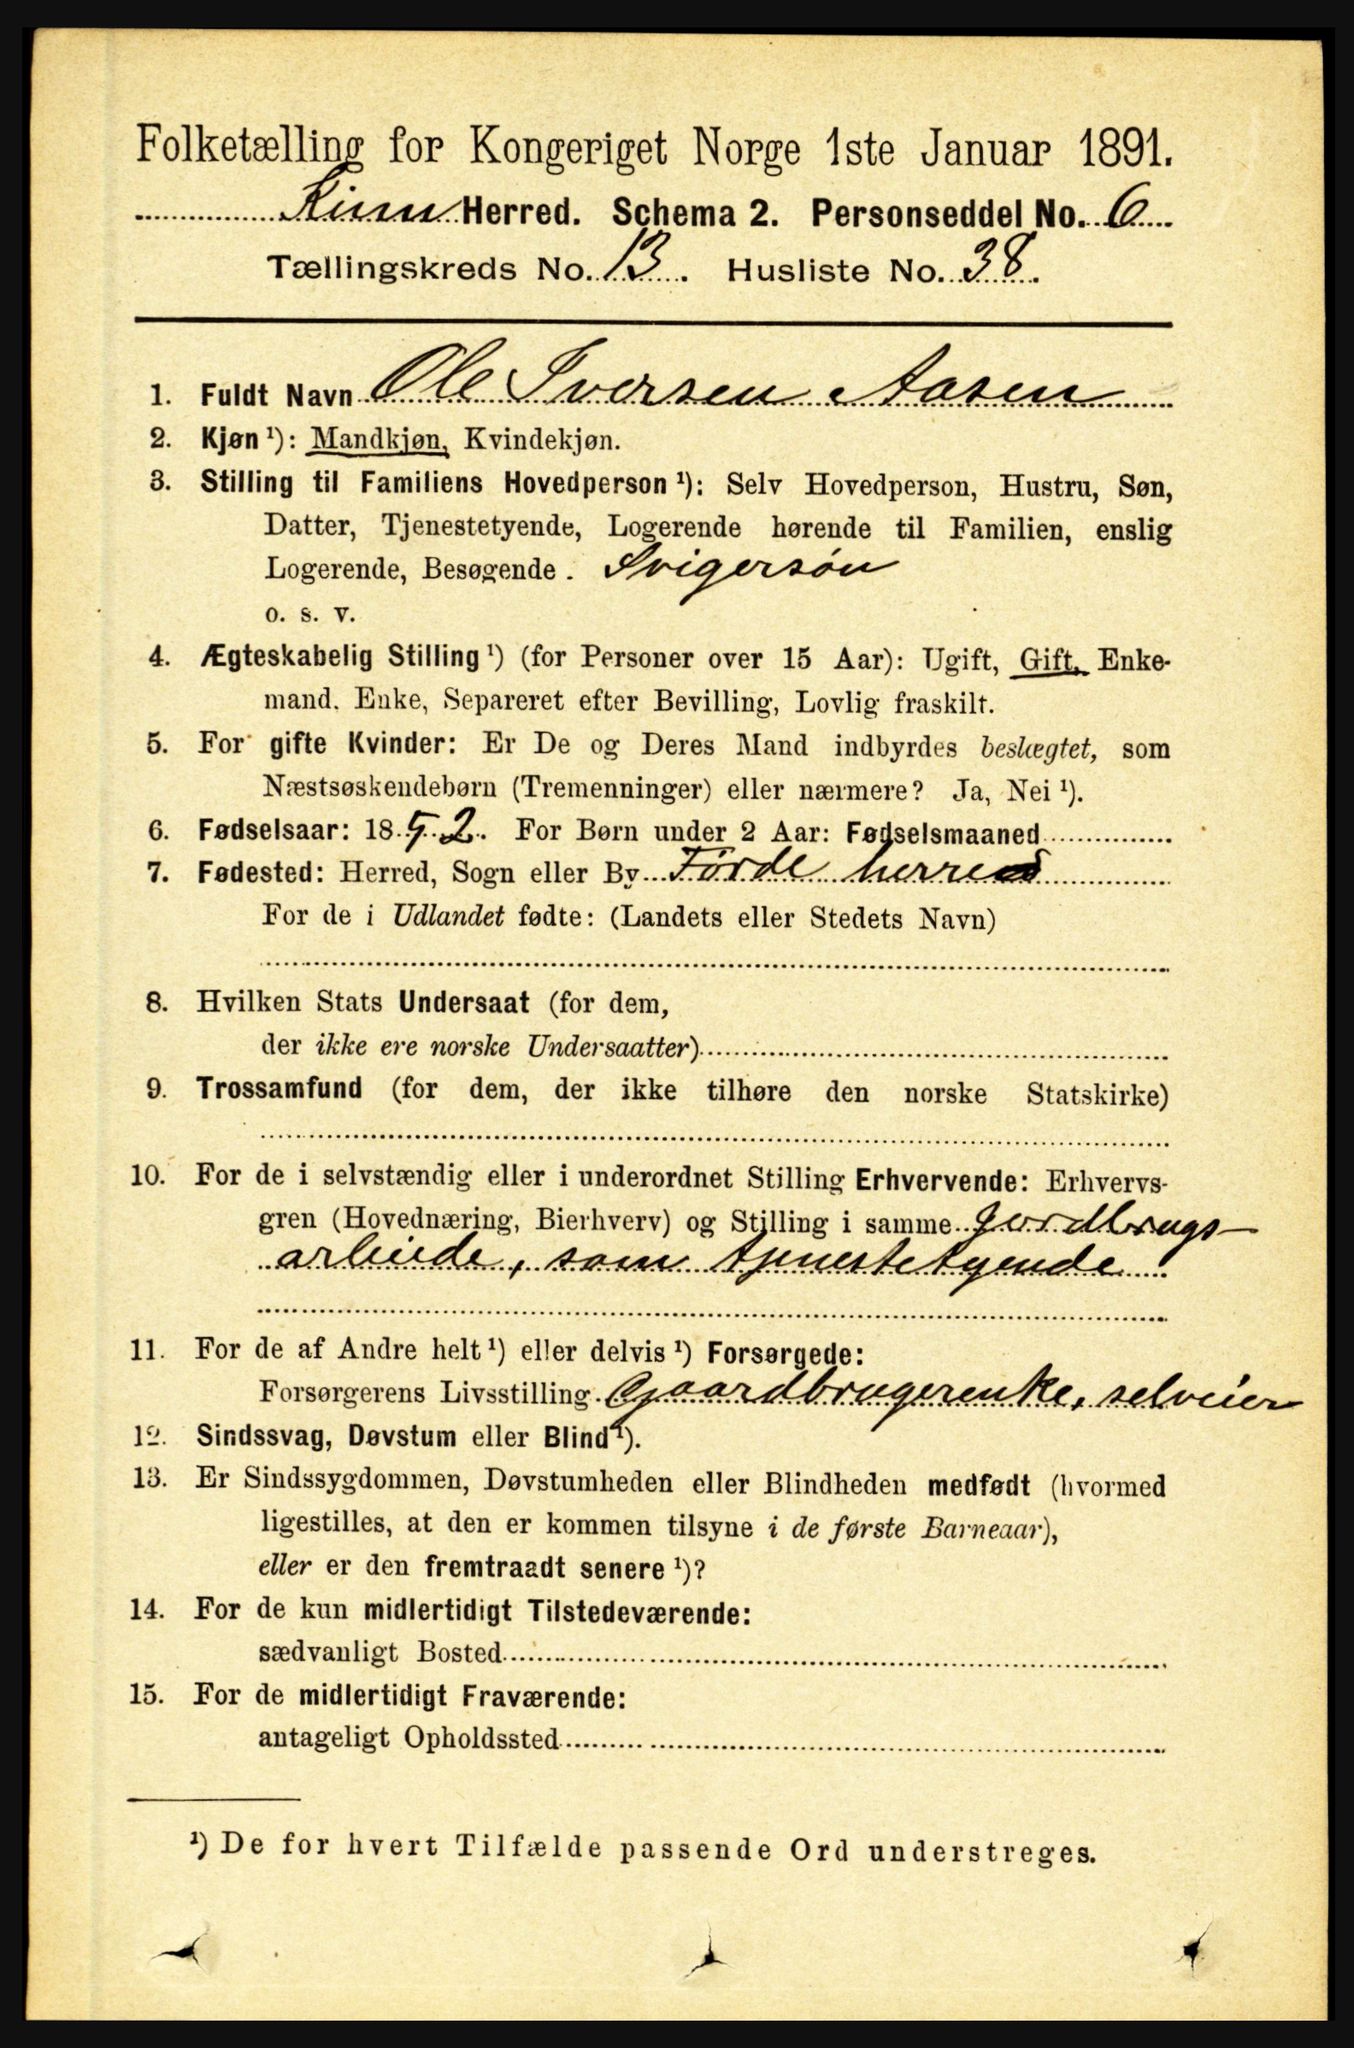 Folketælling for Kongeriget Norge 1ste Januar 1891.
Kinn Herred. Schema 2. Personseddel No. 6
Tællingskreds No. 13. Husliste No. 38.
1. Fuldt Navn Ole Iversen Aasen
2. Kjøn ¹): Mandkjøn, Kvindekjøn.
3. Stilling til Familiens Hovedperson ¹): Selv Hovedperson, Hustru, Søn,
Datter, Tjenestetyende, Logerende hørende til Familien, enslig
Logerende, Besøgende. Svigersøn
o. s. v.
4. Ægteskabelig Stilling ¹) (for Personer over 15 Aar): Ugift, Gift, Enke-
mand, Enke, Separeret efter Bevilling, Lovlig fraskilt.
5. For gifte Kvinder: Er De og Deres Mand indbyrdes beslægtet, som
Næstsøskendebørn (Tremenninger) eller nærmere? Ja, Nei ¹).
6. Fødselsaar: 1852. For Børn under 2 Aar: Fødselsmaaned
7. Fødested: Herred, Sogn eller By Førde herred
For de i Udlandet fødte: (Landets eller Stedets Navn)
8. Hvilken Stats Undersaat (for dem,
der ikke ere norske Undersaatter)
9. Trossamfund (for dem, der ikke tilhøre den norske Statskirke)
10. For de i selvstændig eller i underordnet Stilling Erhvervende: Erhvervs-
gren (Hovednæring, Bierhverv) og Stilling i samme Jordbrugs-
arbeide, som tjenestetyende
11. For de af Andre helt ¹) eller delvis ¹) Forsørgede:
Forsørgerens Livsstilling Gaardbrugerenke, selveier
12. Sindssvag, Døvstum eller Blind ¹).
13. Er Sindssygdommen, Døvstumheden eller Blindheden medfødt (hvormed
ligestilles, at den er kommen tilsyne i de første Barneaar),
eller er den fremtraadt senere ¹)?
14. For de kun midlertidigt Tilstedeværende:
sædvanligt Bosted
15. For de midlertidigt Fraværende:
antageligt Opholdssted
¹) De for hvert Tilfælde passende Ord understreges.